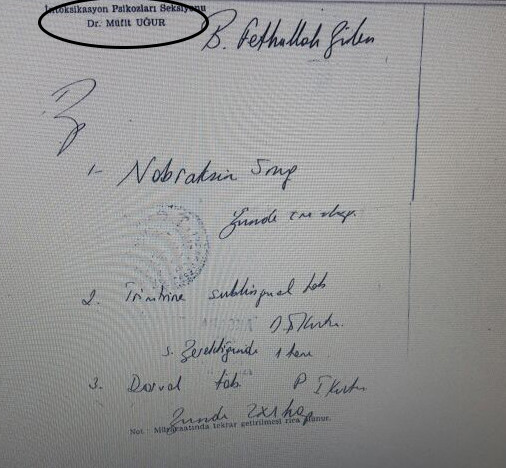 İntoksikasyon Psikozları Seksiyonu
Dr. Müfit UĞUR
B. Fethullah Gülen
1- Nobraksin 5mg
Günde
2. Trinitrine sublingual tab
s. Gerektiğinde 1 tane
3. Dorval tab. P I Kutu
Günde 2x1 hap
Not: Müracaatında tekrar getirilmesi rica olunur.